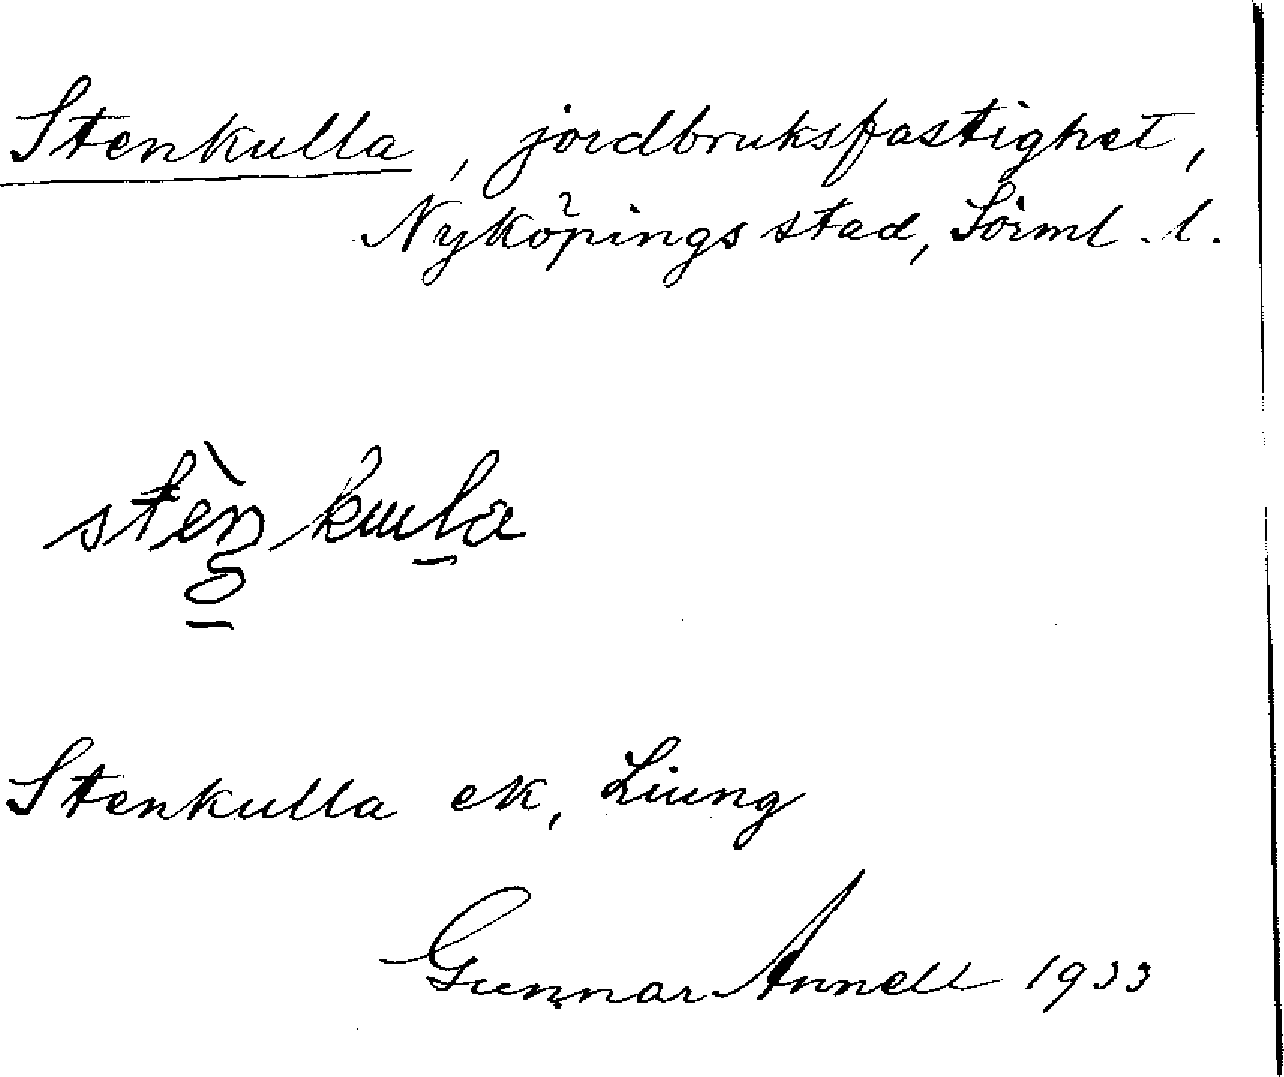 Stenkulla, jordbruksfastighet,
Nyköpings stad, Sörml. l.
Stenkulla ek, Liung
Gunnar Annell 1933